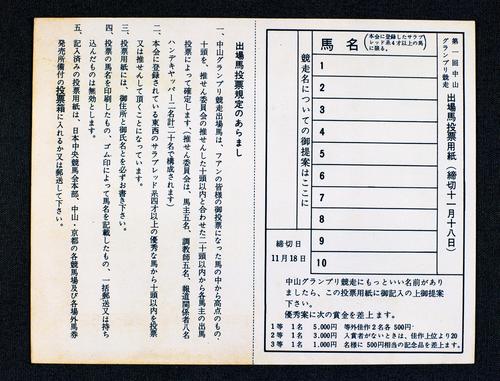 第一回中山
グランプリ競走
出場馬投票用紙(締切十一月十八日)
馬名
(本会に登録したサラブ
レッド系4才以上の馬
に限る。)
1
2
3
4
5
6
7
8
9
10
競走名についての御提案はここに
締切日
11月18日
中山グランプリ競走にもっといい名前があり
ましたら、この投票用紙に御記入の上御提案
下さい。
優秀案に次の賞金を差上ます。
1等 1名 5.000円 等外佳作2名各500円
2等 1名 3.000円 入賞者がないときは、佳作上位より20
3等 1名 1.000円 名様に500円相当の記念品を差上ます。
出場馬投票規定のあらまし
一、中山グランプリ競走出場馬は、フアンの皆様の御投票になった馬の中から高点のもの
十頭を、推せん委員会の推せんした十頭以内と合わせた二十頭以内から各馬主の出馬
投票によって確定します。(推せん委員会は、馬主五名、調教師五名、報道関係者八名
ハンデキャッパー二名計二十名で構成されます)
二、本会に登録されている東西のサラブレッド系四才以上の優秀な馬から十頭以内を投票
又は推せんして頂くことになっています。
三、投票用紙には、御住所と御氏名とを必ずお書き下さい。
四、投票の馬名を印刷したもの、ゴム印によって馬名を記載したもの、一括郵送又は持ち
込んだものは無効とします。
五、記入済みの投票用紙は、日本中央競馬会本部、中山・京都の各競馬場及び各場外馬券
発売所備付の投票箱に入れるか又は郵送して下さい。